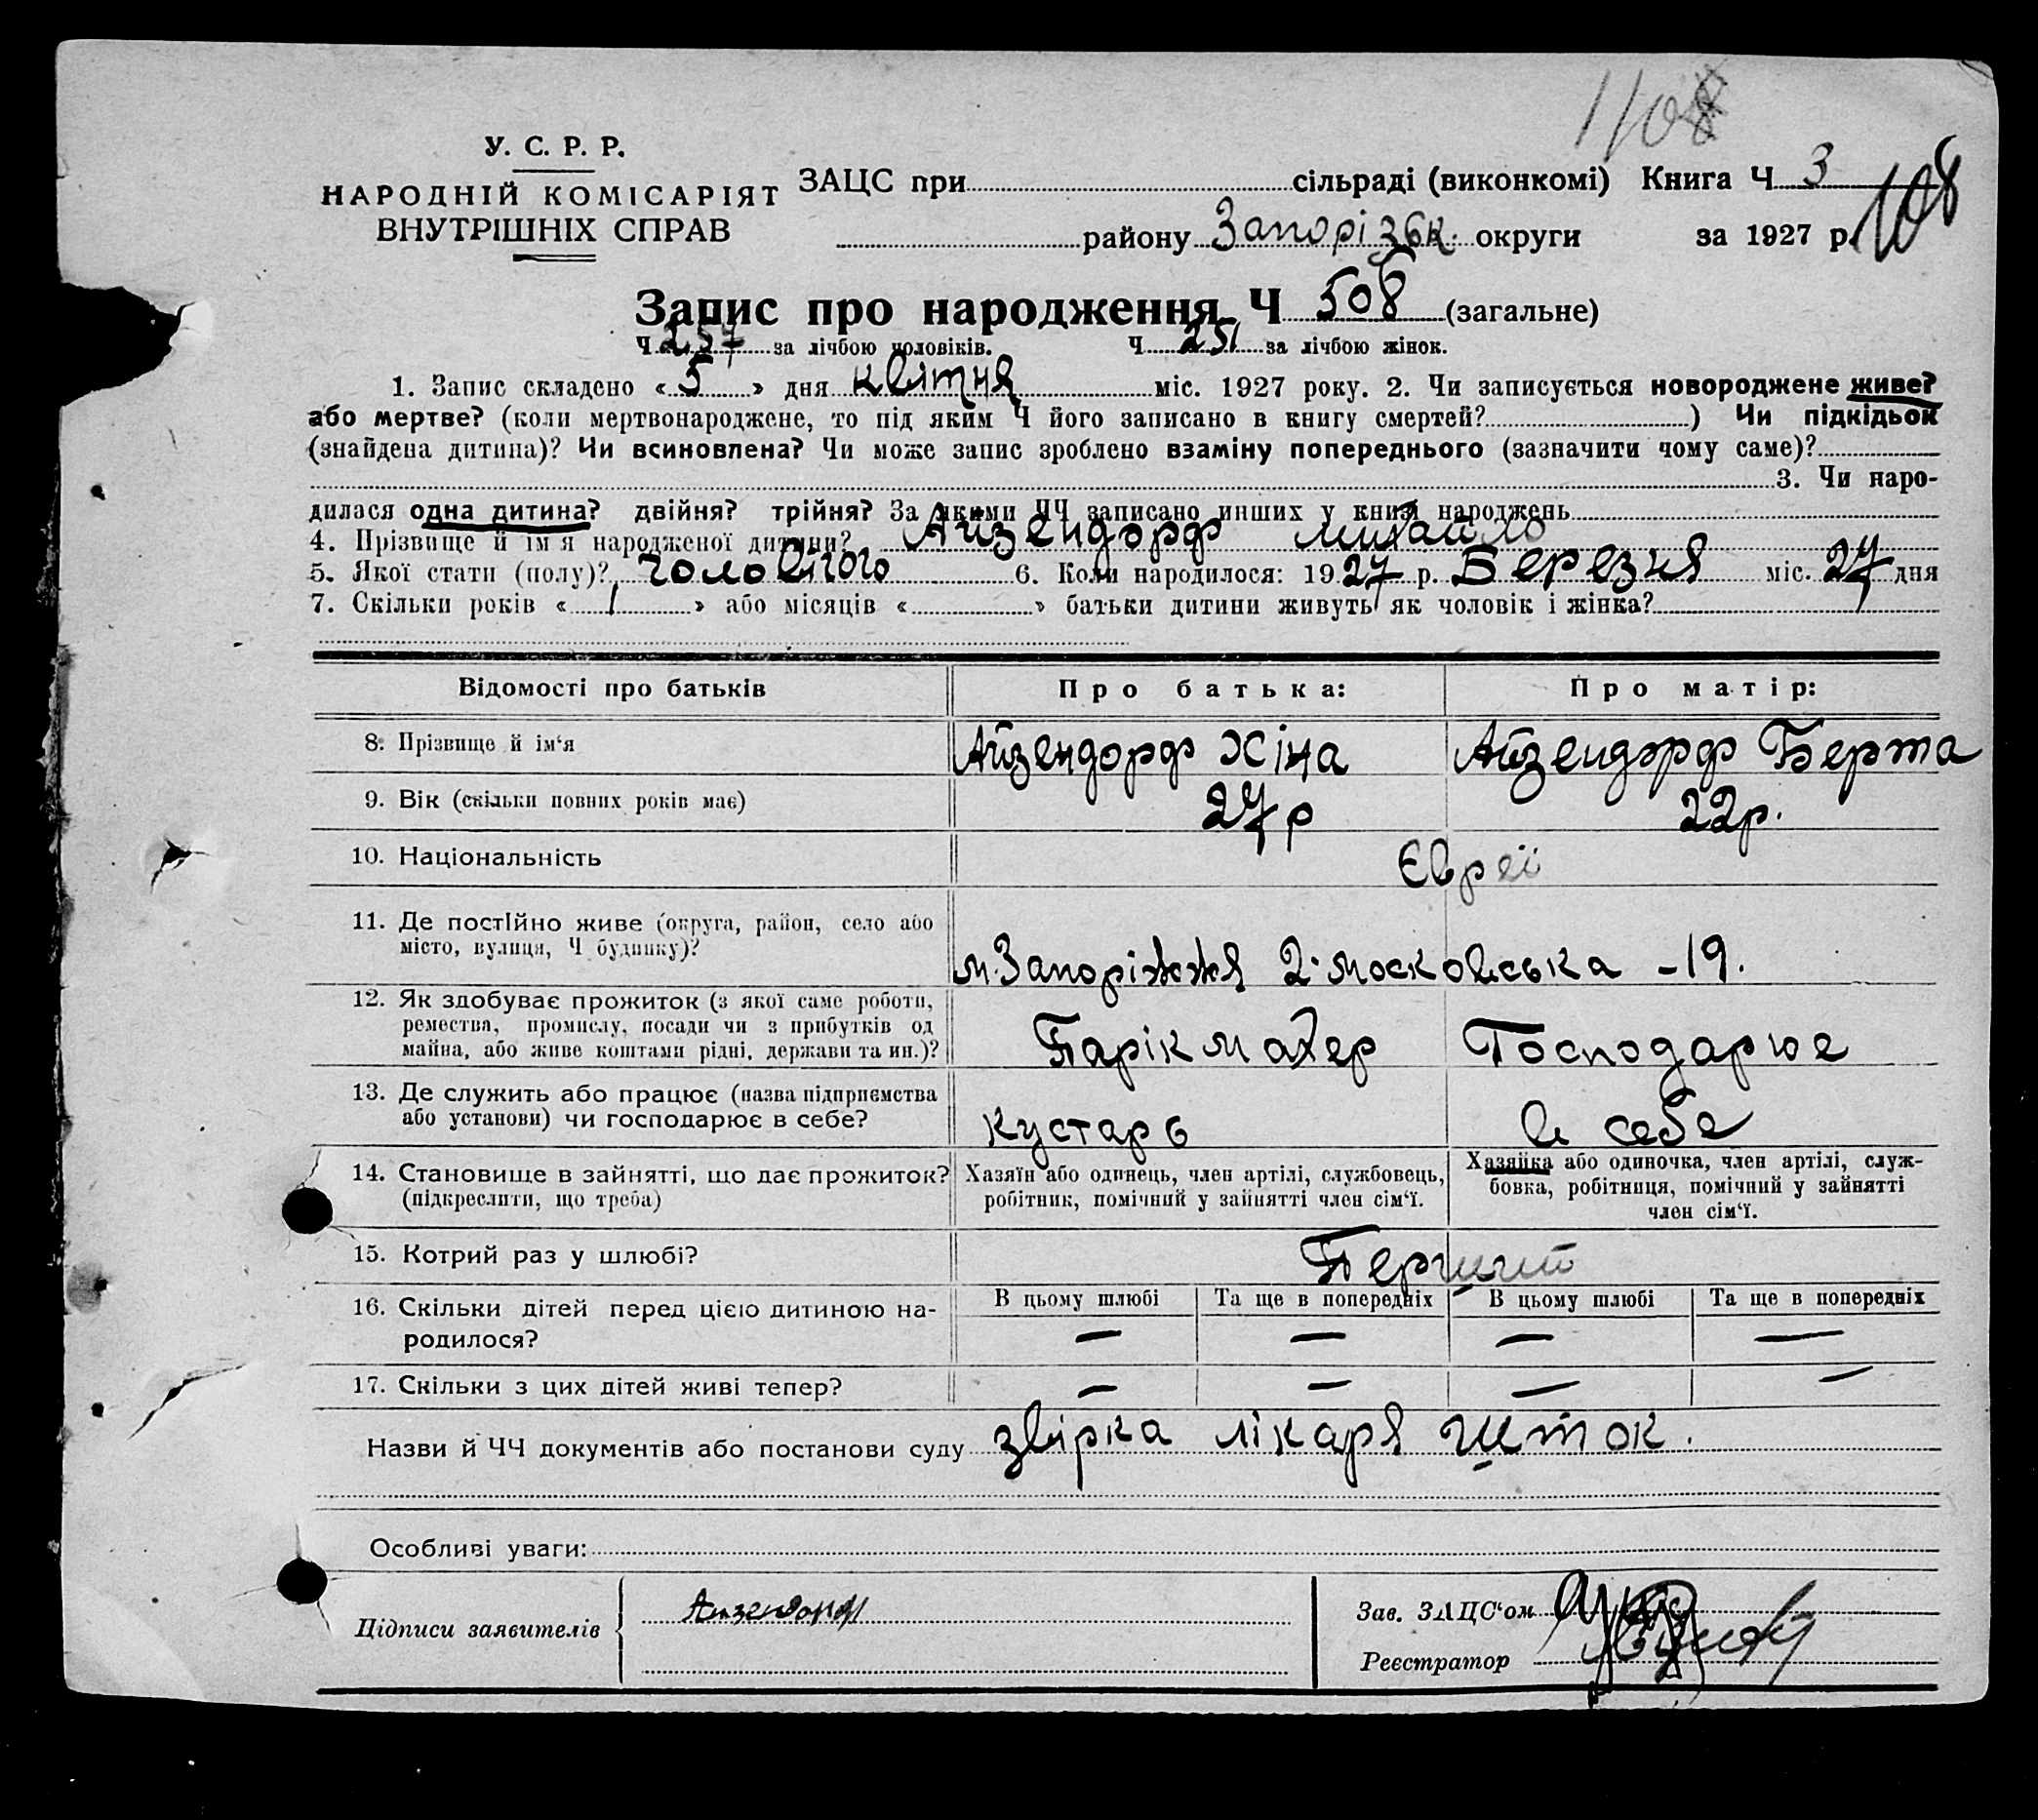 1108
У. С. Р. Р.
НАРОДНІЙ КОМІСАРІЯТ
ВНУТРІШНІХ СПРАВ
ЗАЦС при сільраді (виконкомі) Книга Ч 3
108
району Запорізьк. округи за 1927 р.
Запис про народження Ч 508 (загальне)
Ч 257 за лічбою чоловіків. Ч 251 за лічбою жінок.
1. Запис складено «5» дня квітня міс. 1927 року. 2. Чи записується новороджене живе?
або мертве? (коли мертвонароджене, то під яким Ч його записано в книгу смертей? ) Чи підкідьок
(знайдена дитина)? Чи всиновлена? Чи може запис зроблено взаміну попереднього (зазначити чому саме)?
3. Чи наро-
дилася одна дитина? двійня? трійня? За якими ЧЧ записано инших у книзі народжень
4. Прізвище й ім'я народженої дитини? Айзендорф Михайло
5. Якої стати (полу)? чоловічого 6. Коли народилося: 1927 р. Березня міс. 27 дня
7. Скільки років « 1 » або місяців « » батьки дитини живуть як чоловік і жінка?
Відомості про батьків Про батька: Про матір:
8. Прізвище й ім'я Айзендорф Хіна Айзендорф Берта
9. Вік (скільки повних років має) 27 р 22 р.
10. Національність Євреї
11. Де постійно живе (округа, район, село або
місто, вулиця, Ч будинку)? м. Запоріжжя 2. Московська - 19.
12. Як здобуває прожиток (з якої саме роботи,
ремества, промислу, посади чи з прибутків од
майна, або живе коштами рідні, держави та ин.)? Парікмахер Господарює
13. Де служить або працює (назва підприємства
або установи) чи господарює в себе? кустарь в себе
14. Становище в зайнятті, що дає прожиток?
(підкреслити, що треба)
Хазяїн або одинець, член артілі, службовець,
робітник, помічний у зайнятті член сім'ї.
Хазяйка або одиночка, член артілі, служ-
бовка, робітниця, помічний у зайнятті
член сім'ї.
15. Котрий раз у шлюбі? Перший
16. Скільки дітей перед цією дитиною на-
родилося?
В цьому шлюбі Та ще в попередніх В цьому шлюбі Та ще в попередніх
— — — —
17. Скільки з цих дітей живі тепер? — — — —
Назви й ЧЧ документів або постанови суду звірка лікаря Шток.
Особливі уваги:
Підписи заявителів Айзендорф
Зав. ЗАЦС'ом
Реєстратор